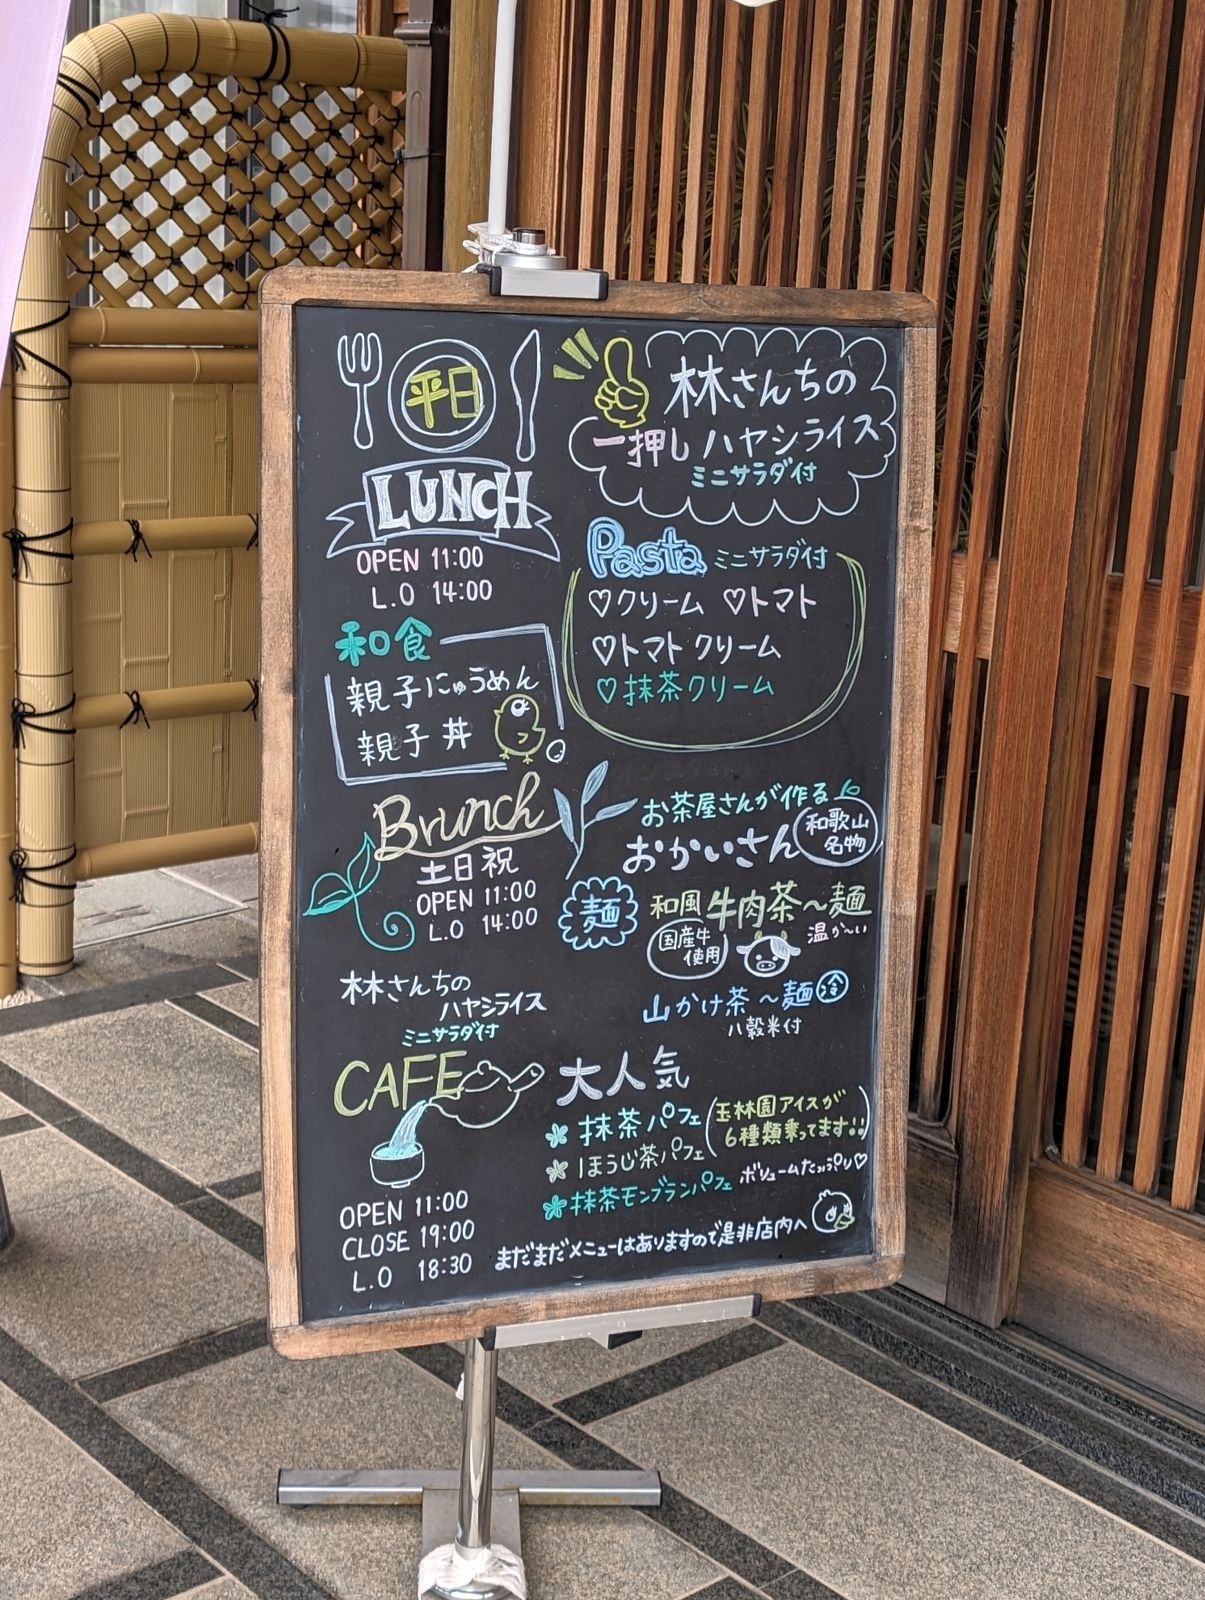 平日
LUNCH
OPEN 11:00
L.O 14:00
和食
親子にゅうめん
親子丼
林さんちの
一押しハヤシライス
ミニサラダ付
Pasta ミニサラダ付
♡クリーム ♡トマト
♡トマトクリーム
♡抹茶クリーム
Brunch
土日祝
OPEN 11:00
L.O 14:00
林さんちの
ハヤシライス
ミニサラダ付
お茶屋さんが作る
おかいさん
和歌山
名物
麺
和風牛肉茶〜麺
国産牛
使用
温か〜い
山かけ茶〜麺 冷
八穀米付
CAFE
OPEN 11:00
CLOSE 19:00
L.O 18:30
大人気
抹茶パフェ
ほうじ茶パフェ
(玉林園アイスが
6種類乗ってます!!)
抹茶モンブランパフェ ボリュームたっぷり♡
まだまだメニューはありますので是非店内へ